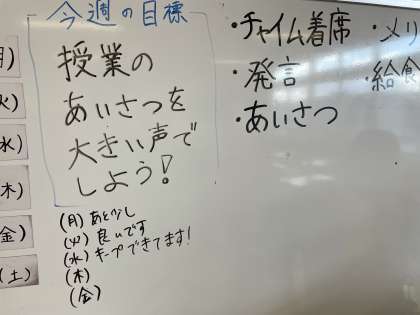 今週の目標
授業の
あいさつを
大きい声で
しよう!
(月) あと少し
(火) 良いです
(水) キープできてます!
(木)
(金)
・チャイム着席
・発言
・あいさつ
・メリ
・給食
月)
火)
水)
木)
金)
(土)